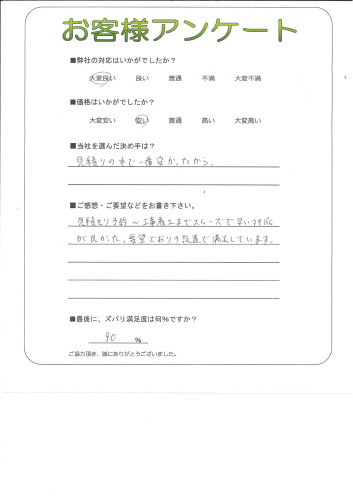 お客様アンケート
■弊社の対応はいかがでしたか?
大変良い 良い 普通 不満 大変不満
■価格はいかがでしたか?
大変安い 安い 普通 高い 大変高い
■当社を選んだ決め手は?
見積りの中で一番安かったから。
■ご感想・ご要望などをお書き下さい。
見積もり予約～工事完工までスムーズで早い対応
が良かった。希望どおりの設置で満足しています。
■最後に、ズバリ満足度は何%ですか?
90 %
ご協力頂き、誠にありがとうございました。